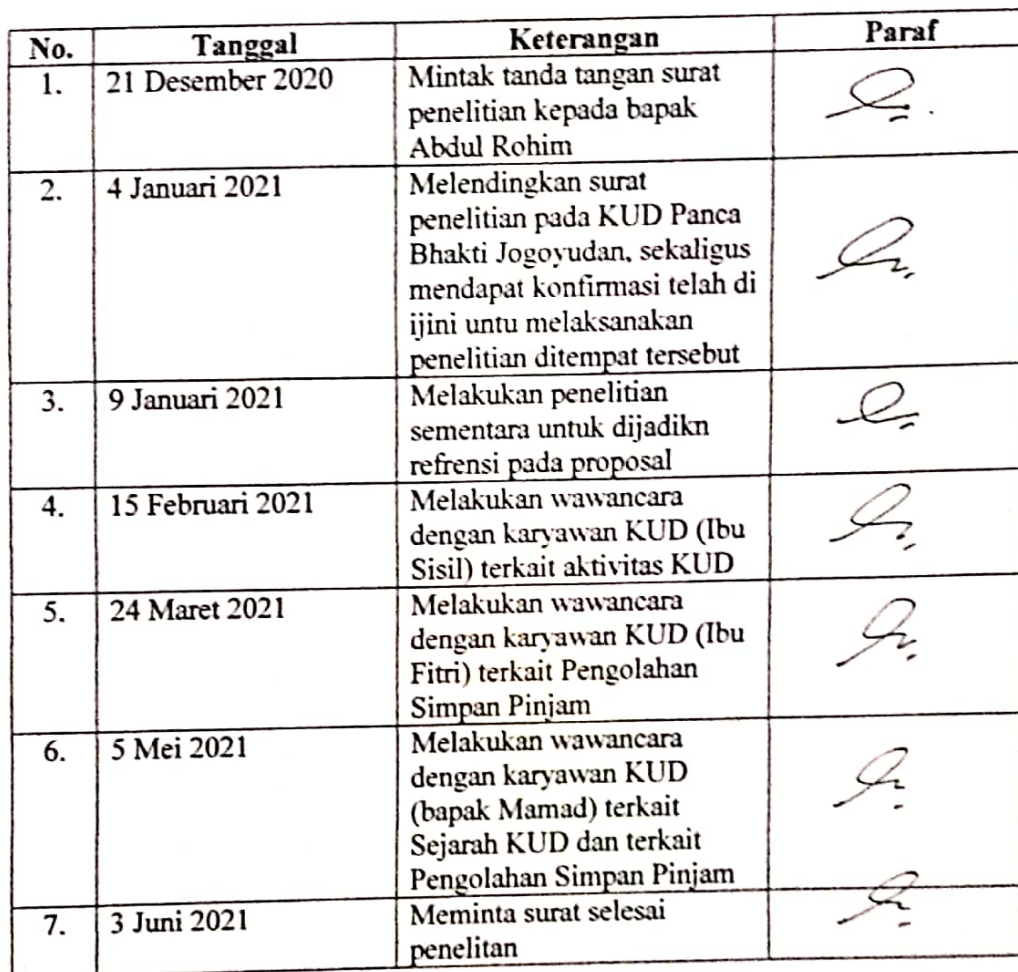 No. Tanggal Keterangan Paraf
1. 21 Desember 2020 Mintak tanda tangan surat
penelitian kepada bapak
Abdul Rohim
2. 4 Januari 2021 Melendingkan surat
penelitian pada KUD Panca
Bhakti Jogoyudan, sekaligus
mendapat konfirmasi telah di
ijini untu melaksanakan
penelitian ditempat tersebut
3. 9 Januari 2021 Melakukan penelitian
sementara untuk dijadikn
refrensi pada proposal
4. 15 Februari 2021 Melakukan wawancara
dengan karyawan KUD (Ibu
Sisil) terkait aktivitas KUD
5. 24 Maret 2021 Melakukan wawancara
dengan karyawan KUD (Ibu
Fitri) terkait Pengolahan
Simpan Pinjam
6. 5 Mei 2021 Melakukan wawancara
dengan karyawan KUD
(bapak Mamad) terkait
Sejarah KUD dan terkait
Pengolahan Simpan Pinjam
7. 3 Juni 2021 Meminta surat selesai
penelitan